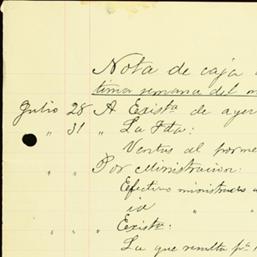 Nota de caja
tima semana del m
Julio 28 A Exista de ayer
" 31 " La Fta:
Ventas al porme
" " Por Ministracion:
Efectivo ministrado
id "
" " Exista:
La que resulta pa.